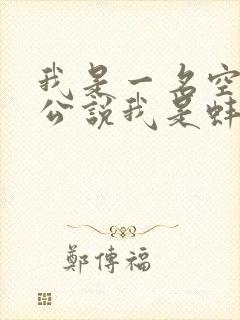 我是一名空
公說我是蚌
鄭傳福